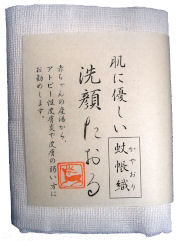 肌に優しい
洗顔たおる
かやおり
蚊帳織
赤ちゃんの産湯から、
アトピー性皮膚炎や皮膚の弱い方に
お勧めします。